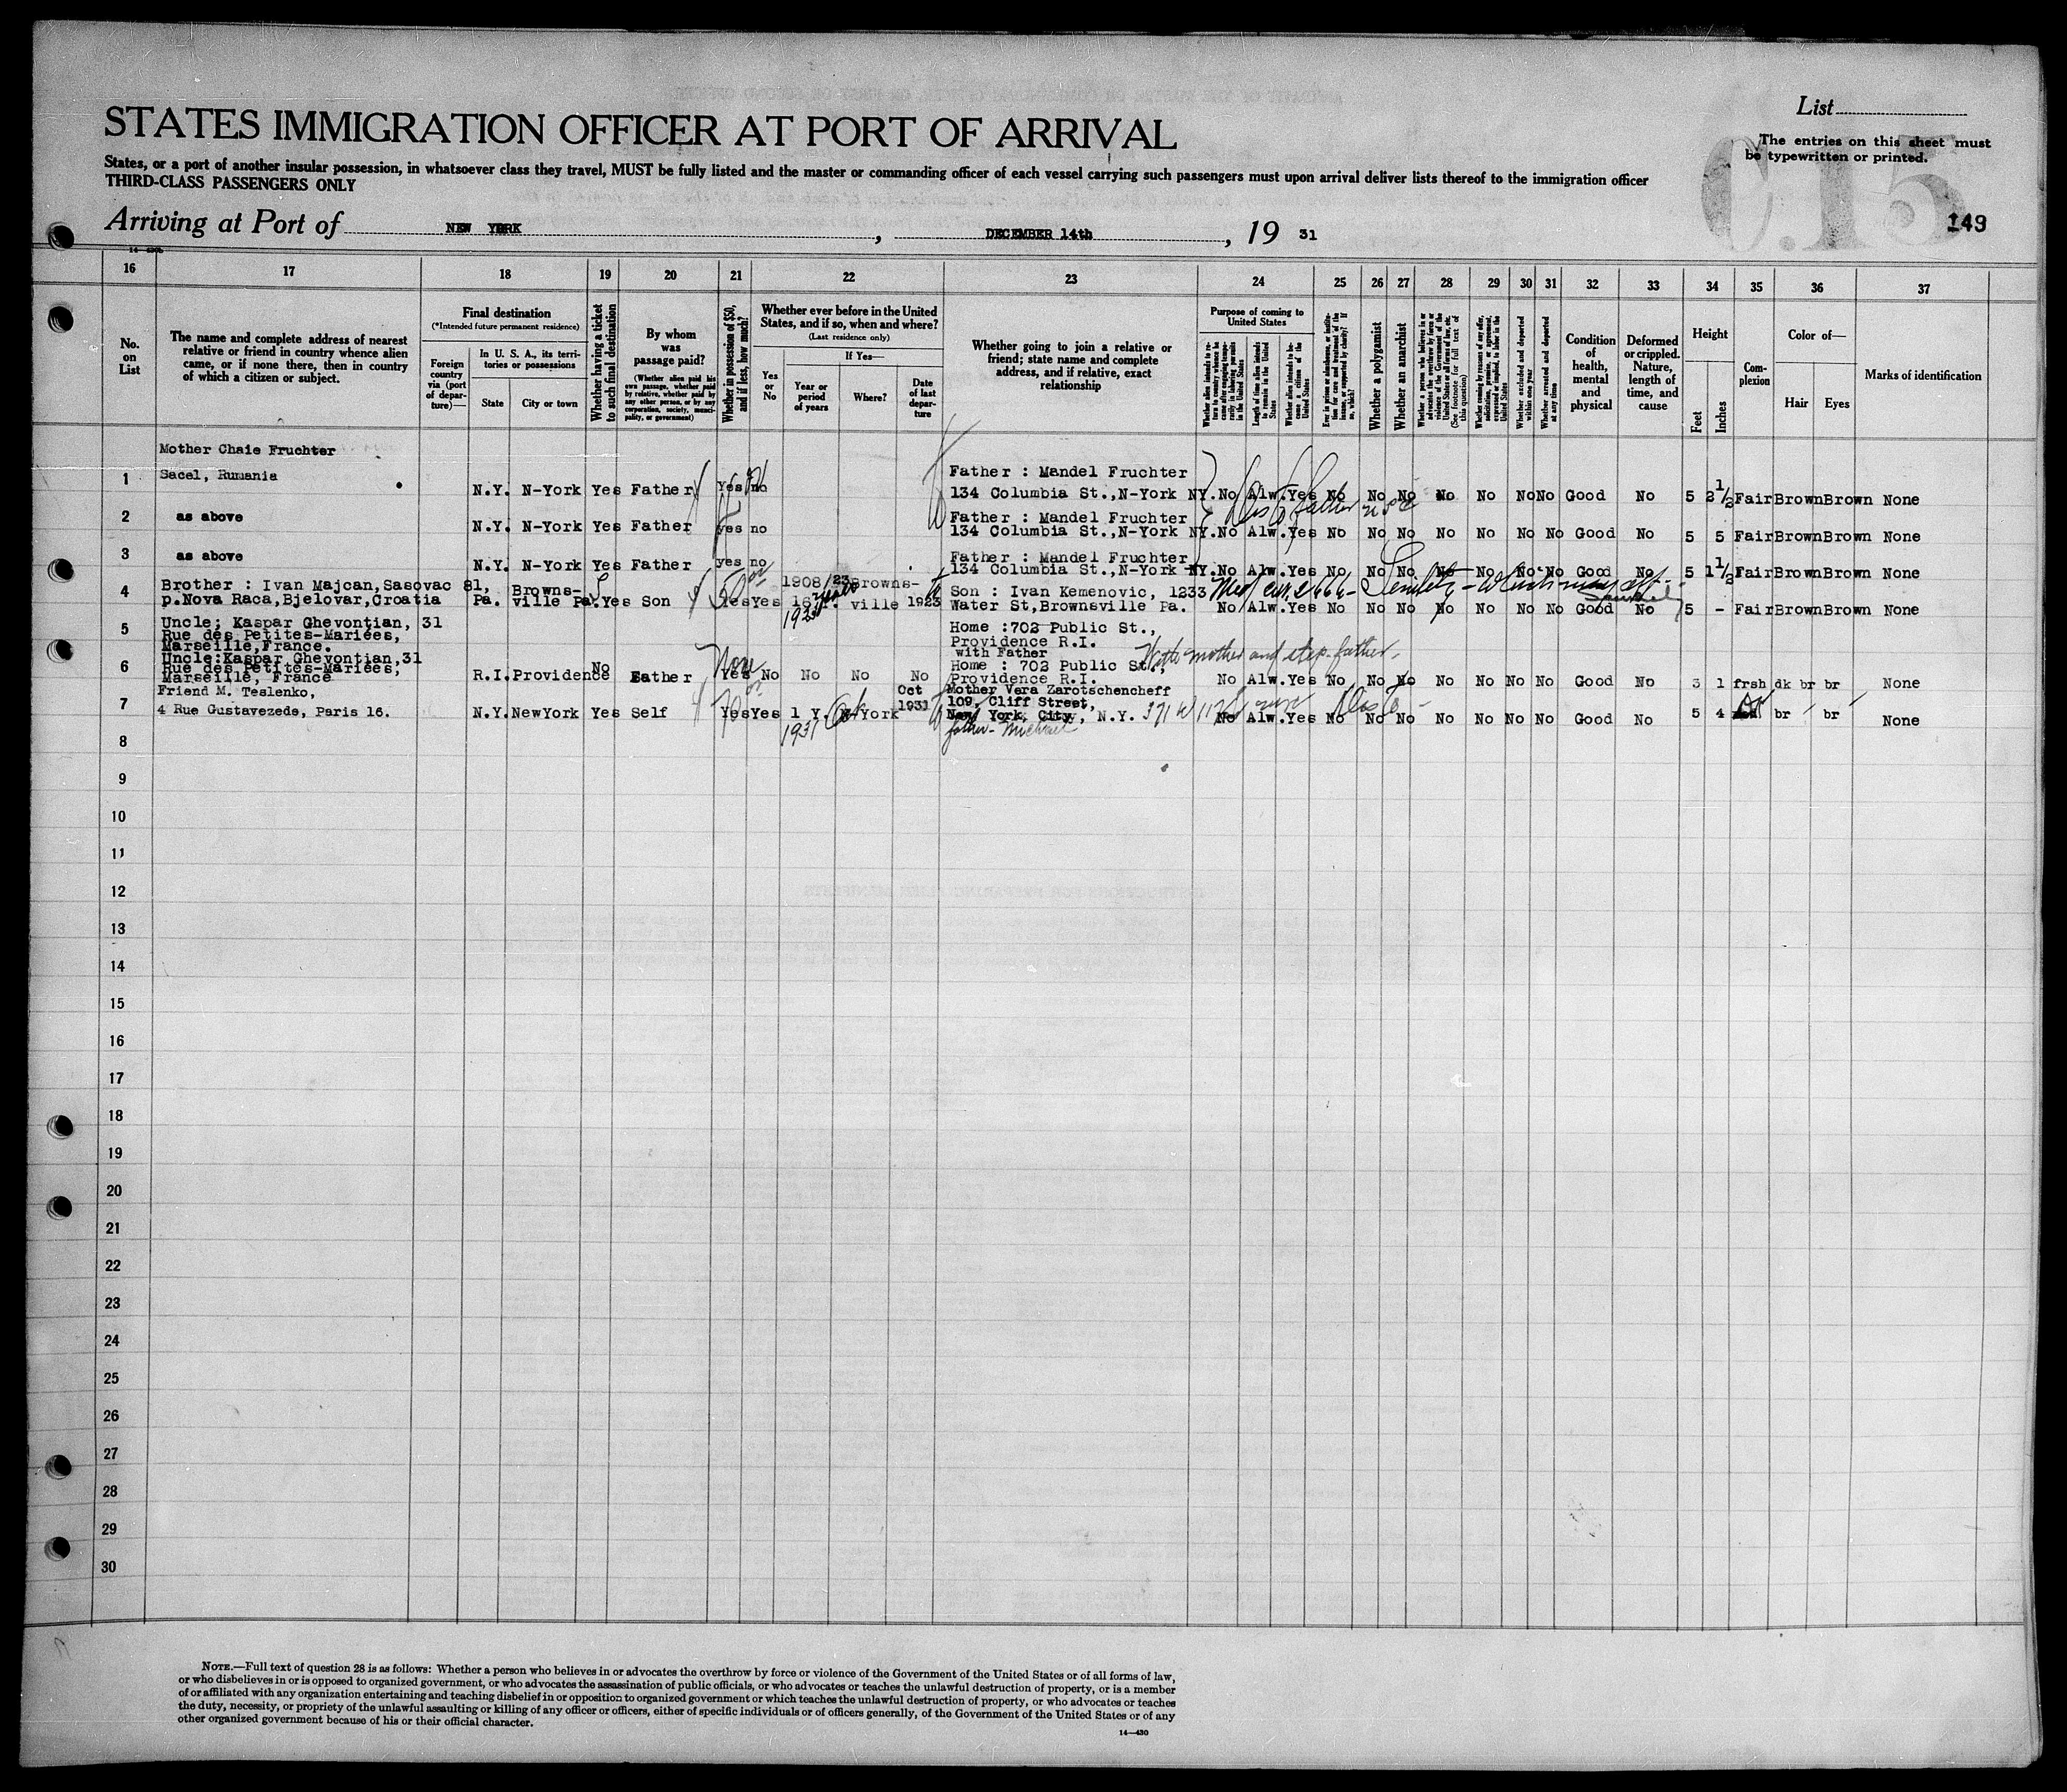 List
The entries on this sheet must
be typewritten or printed.
C15
STATES IMMIGRATION OFFICER AT PORT OF ARRIVAL
States, or a port of another insular possession, in whatsoever class they travel, MUST be fully listed and the master or commanding officer of each vessel carrying such passengers must upon arrival deliver lists thereof to the immigration officer
THIRD-CLASS PASSENGERS ONLY
Arriving at Port of NEW YORK, DECEMBER 14th, 19 31
149
16 17 18 19 20 21 22 23 24 25 26 27 28 29 30 31 32 33 34 35 36 37
No. on List
The name and complete address of nearest
relative or friend in country whence alien
came, or if none there, then in country
of which a citizen or subject.
Final destination
(*Intended future permanent residence)
Foreign country via (port of departure)—
In U. S. A., its territories or possessions
State
City or town
Whether having a ticket to such final destination
By whom was passage paid?
(Whether alien paid his own passage, whether paid by relative, whether paid by any other person, or by any corporation, society, municipality, or government)
Whether in possession of $50, and if less, how much?
Whether ever before in the United States, and if so, when and where?
(Last residence only)
Yes or No
If Yes—
Year or period of years
Where?
Date of last departure
Whether going to join a relative or
friend; state name and complete
address, and if relative, exact
relationship
Purpose of coming to United States
Whether a polygamist
Whether an anarchist
Whether excluded and deported within one year
Whether arrested and deported at any time
Condition of health, mental and physical
Deformed or crippled. Nature, length of time, and cause
Height
Feet
Inches
Complexion
Color of—
Hair
Eyes
Marks of identification
Mother Chaie Fruchter
1 Sacel, Rumania N.Y. N-York Yes Father Yes no Father : Mandel Fruchter
134 Columbia St.,N-York NY. No Alw. Yes No No No No No No No Good No 5 2 1/2 Fair Brown Brown None
2 as above N.Y. N-York Yes Father yes no Father : Mandel Fruchter
134 Columbia St.,N-York NY. No Alw. Yes No No No No No No No Good No 5 5 Fair Brown Brown None
3 as above N.Y. N-York Yes Father yes no Father : Mandel Fruchter
134 Columbia St.,N-York NY. No Alw. Yes No No No No No No No Good No 5 1 1/2 Fair Brown Brown None
4 Brother : Ivan Majcan,Sasovac 81,
p.Nova Raca,Bjelovar,Croatia Pa. Browns-ville Pa. Yes Son Yes Yes 1908/23 Browns-ville 1923 Son : Ivan Kemenovic, 1233
Water St,Brownsville Pa. No Alw. Yes No No No No No No No Good No 5 - Fair Brown Brown None
5 Uncle; Kaspar Ghevontian, 31
Rue des Petites-Mariées,
Marseille,France. Home :702 Public St.,
Providence R.I.
with Father
With mother and step-father.
6 Uncle:Kaspar Ghevontian,31
Rue des Petites-Mariées,
Marseille, France R.I. Providence No Father None Yes No No No No Home : 702 Public St.,
Providence R.I. No Alw. Yes No No No No No No No Good No 3 1 frsh dk br br None
7 Friend M. Teslenko,
4 Rue Gustavezede, Paris 16. N.Y. NewYork Yes Self Yes Yes 1 Y. N-York Oct 1931 Mother Vera Zarotschencheff
109, Cliff Street,
New York, City, N.Y. No Alw. Yes No No No No No No No Good No 5 4 br br None
1931 father- Michael
8
9
10
11
12
13
14
15
16
17
18
19
20
21
22
23
24
25
26
27
28
29
30
NOTE.—Full text of question 28 is as follows: Whether a person who believes in or advocates the overthrow by force or violence of the Government of the United States or of all forms of law,
or who disbelieves in or is opposed to organized government, or who advocates the assassination of public officials, or who advocates or teaches the unlawful destruction of property, or is a member
of or affiliated with any organization entertaining and teaching disbelief in or opposition to organized government or which teaches the unlawful destruction of property, or who advocates or teaches
the duty, necessity, or propriety of the unlawful assaulting or killing of any officer or officers, either of specific individuals or of officers generally, of the Government of the United States or of any
other organized government because of his or their official character.
14—430